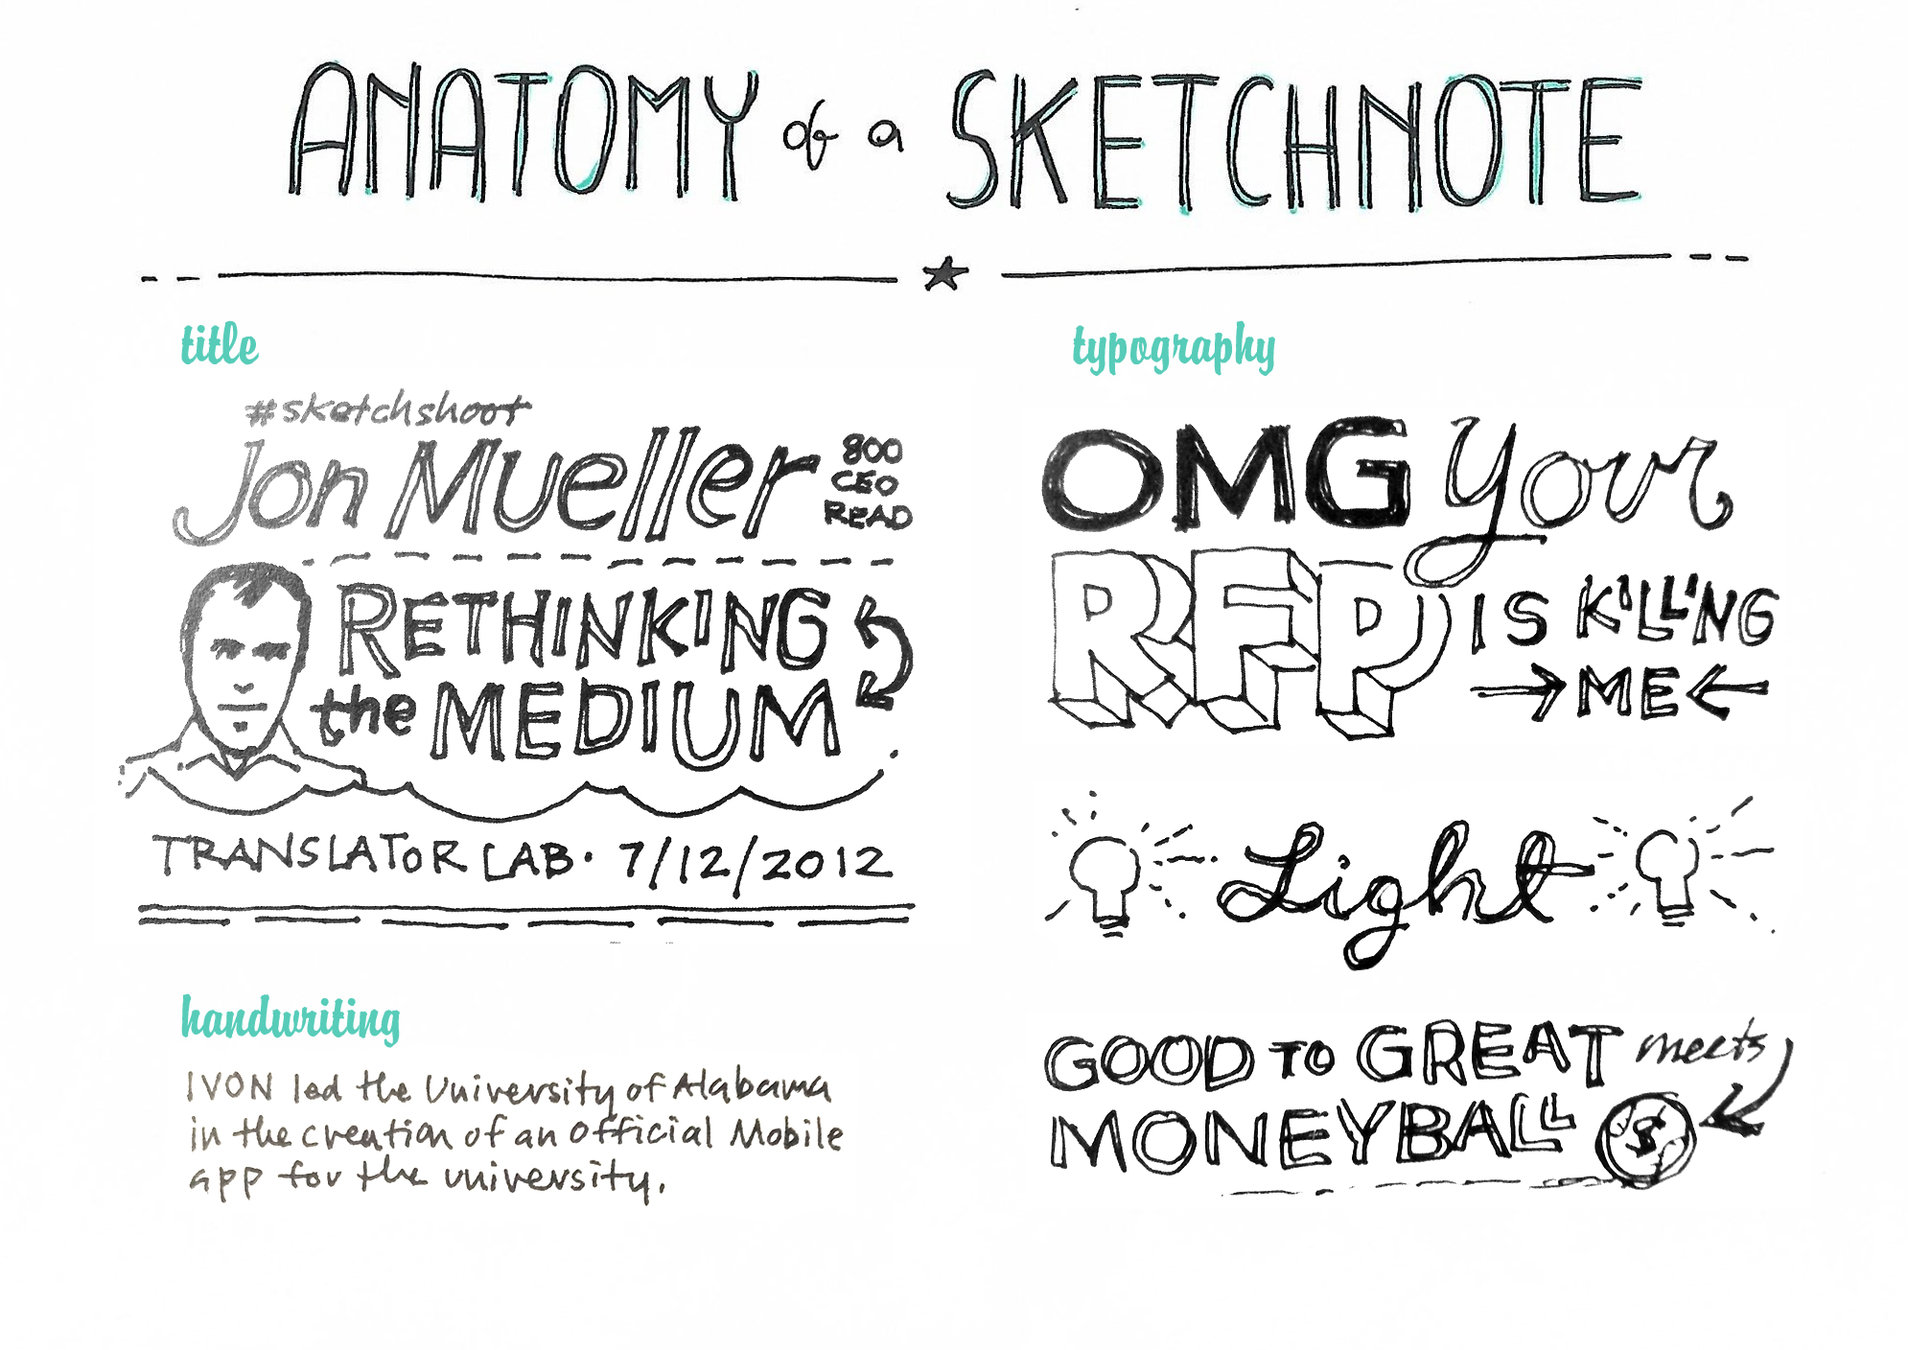 ANATOMY of a SKETCHNOTE
title
#sketchshoot
Jon Mueller
800
CEO
READ
RETHINKING
the MEDIUM
TRANSLATOR LAB · 7/12/2012
handwriting
IVON led the University of Alabama
in the creation of an official Mobile
app for the university.
typography
OMG your
RFP IS KILLING
ME
Light
GOOD TO GREAT meets
MONEYBALL
$